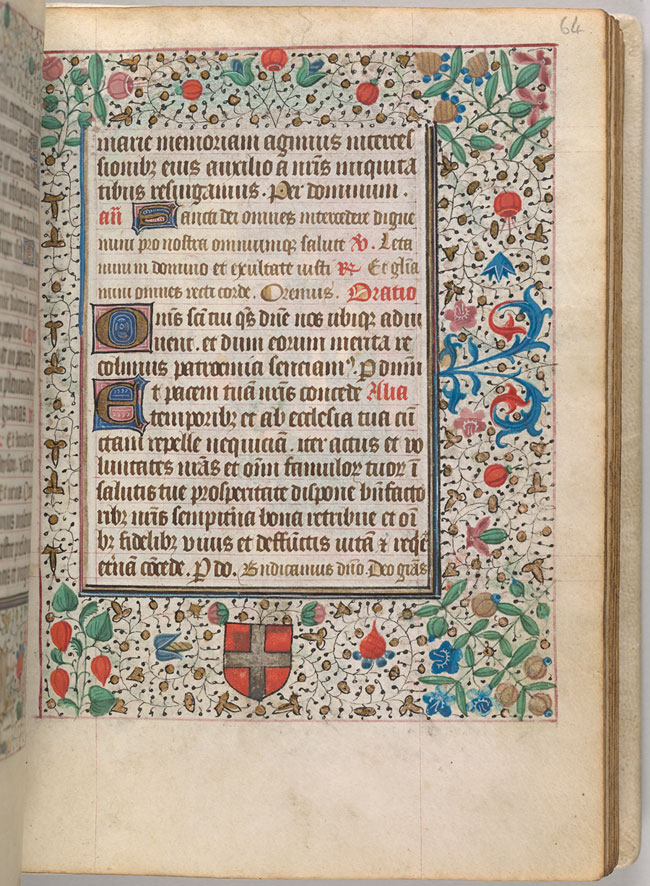 64
marie memoriam agimus interces
sionibꝫ eius auxilio a nr̄is iniquita
tibus resurgamus. Per dominum.
an̄ Sancti dei omnes intercedere digne
mini pro nostra omniumqꝫ salute ℣. Leta
mini in domino et exultate iusti ℟. Et glīa
mini omnes recti corde. Oremus. Oratio
Omīs sc̄ti tui qs̄ dn̄e nos ubiqꝫ adiu
uent. et dum eorum merita re
colimus patrocinia senciamꝰ. P dnm̄
Et pacem tuā nr̄is concede Alia
temporibꝫ et ab ecclesia tua cū
ctam repelle nequiciā. iter actus et vo
luntates nr̄as et oīm famulor tuor ī
salutis tue prosperitate dispone bn̄facto
ribꝫ nr̄is sempit̄na bona retribue et oī
bꝫ fidelibꝫ viuis et deffunctis vitā ⁊ requiē
et̄nā cōcede. P do. Bn̄dicamus dn̄o. Deo gr̄as